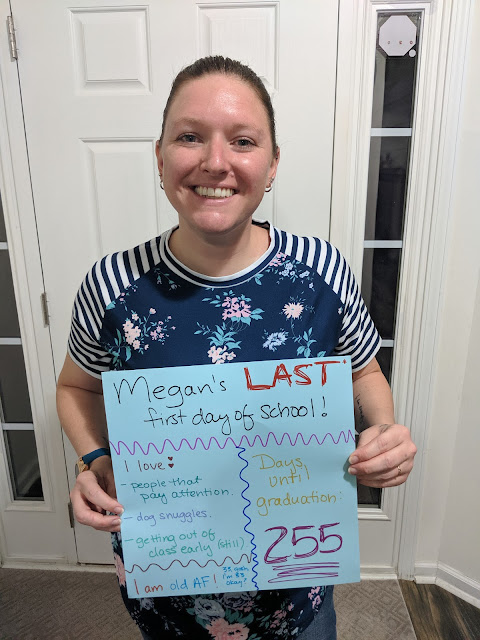 Megan's LAST
first day of school!
I love:
- people that
pay attention.
- dog snuggles.
- getting out of
class early (still)
I am old AF!
okay?
Days
until
graduation:
255